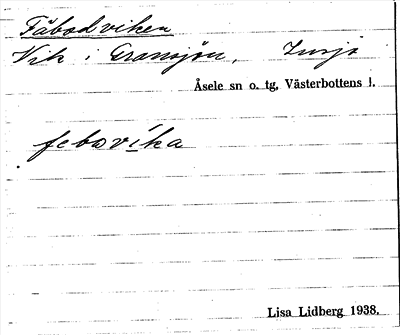 Fäbodviken
Vik i Gransjön, Lusjö
Åsele sn o. tg, Västerbottens l.
febovika
Lisa Lidberg 1938.